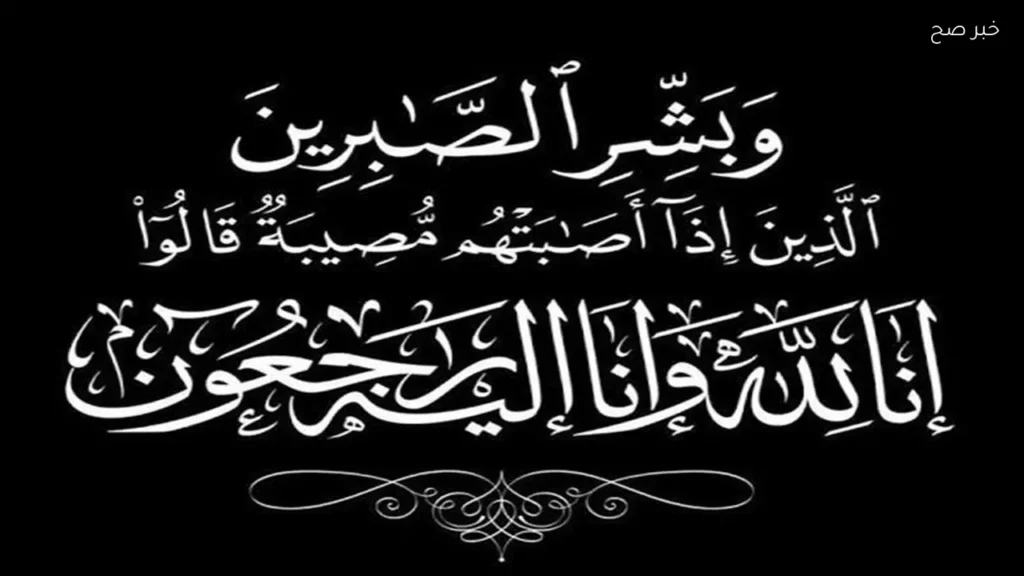 خبر صح
وَبَشِّرِ ٱلصَّـٰبِرِينَ
ٱلَّذِينَ إِذَآ أَصَـٰبَتْهُم مُّصِيبَةٌ قَالُوٓا۟
إنا لله وإنا إليه راجعون